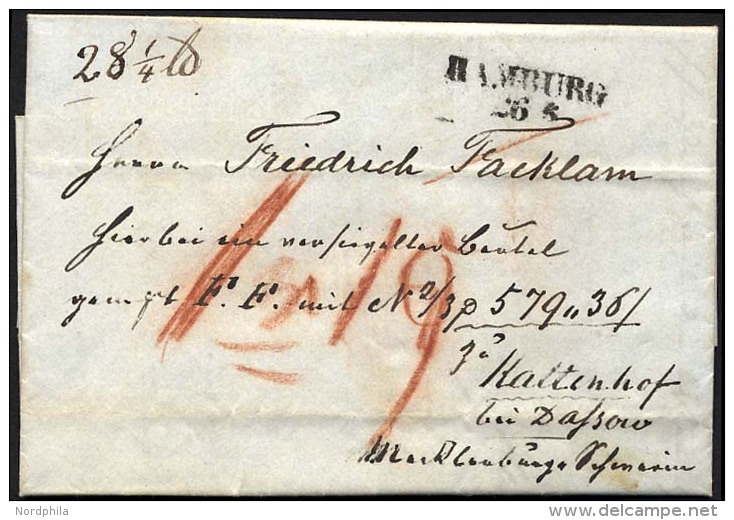 28 1/4 lb
HAMBURG
26 5
Herrn Friedrich Facklam
hierbei ein versiegelter Beutel
gemerkt F. F. mit N 2/3 579 " 36/
zu
Kaltenhof
bei Dassow
Mecklenburg Schwerin
Nordphila
delcampe.net